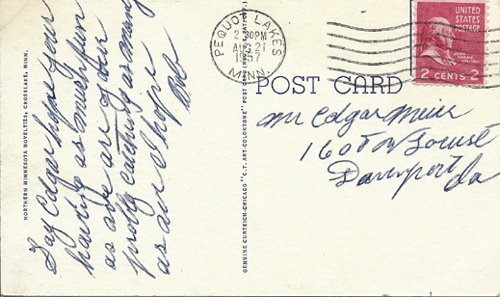 NORTHERN MINNESOTA NOVELTIES, CROSSLAKE, MINN.
Say Edgar hope your
having as much fun
as we are & your
probly catching as many
as we I hope
GENUINE CURTEICH-CHICAGO "C.T. ART-COLORTONE" POST
PEQUOT LAKES
2 30PM
AUG 21
1957
MINN.
UNITED STATES POSTAGE
2 CENTS 2
POST CARD
Mr Edgar Meier
1605 W Locust
Davenport Ia